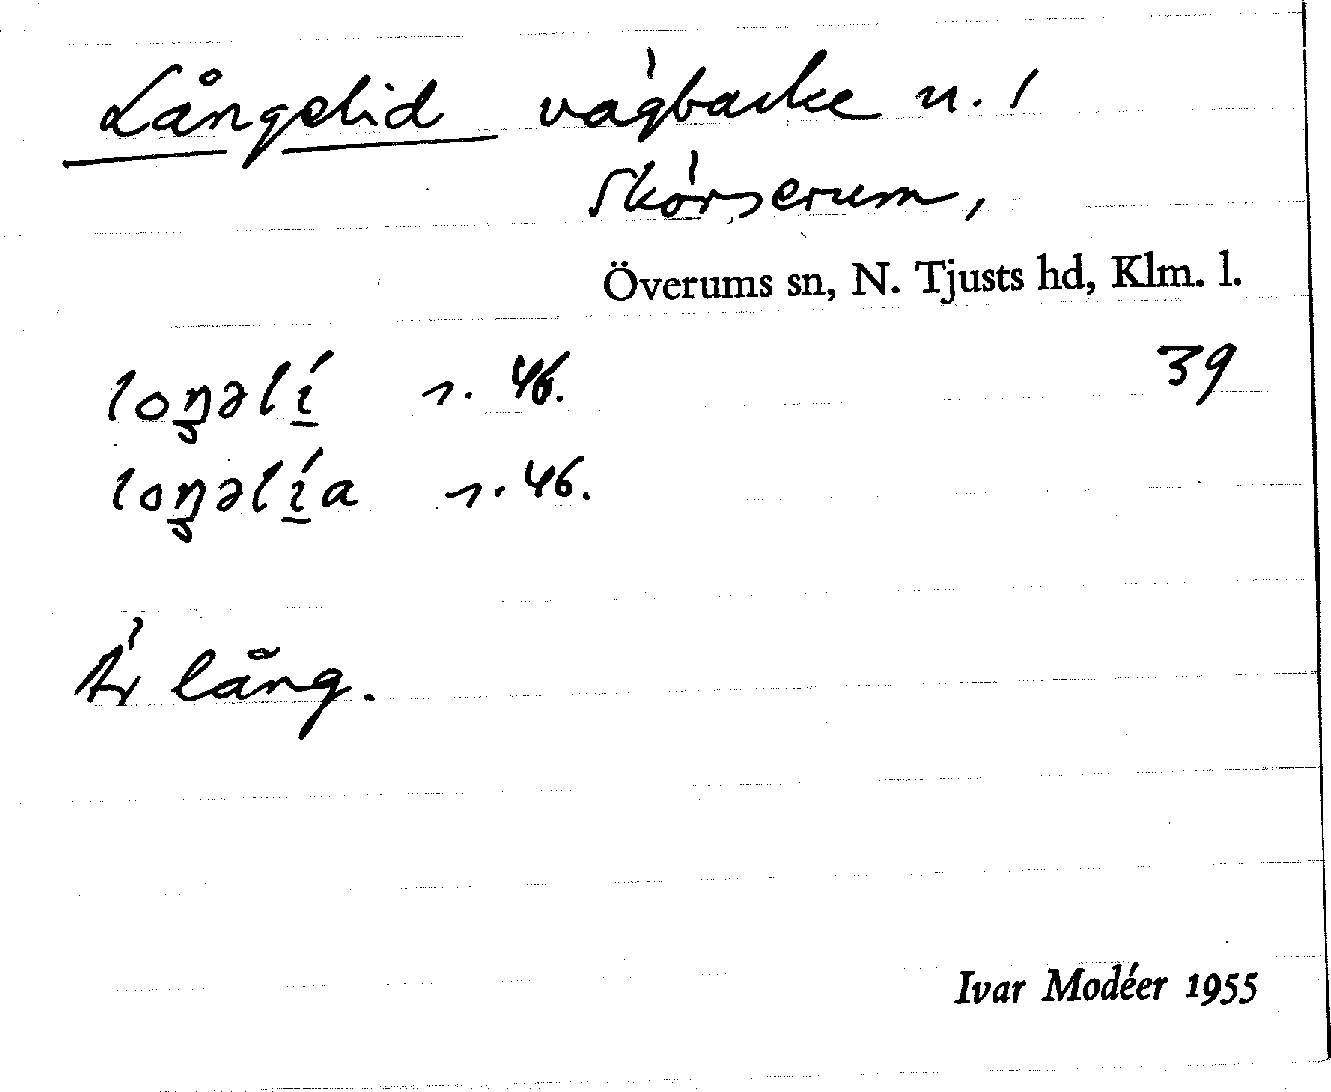 Långelid vägbacke n. 1
Skörserum,
Överums sn, N. Tjusts hd, Klm. l.
loŋəlí s. 46. 39
loŋəlía s. 46.
Är lång.
Ivar Modéer 1955